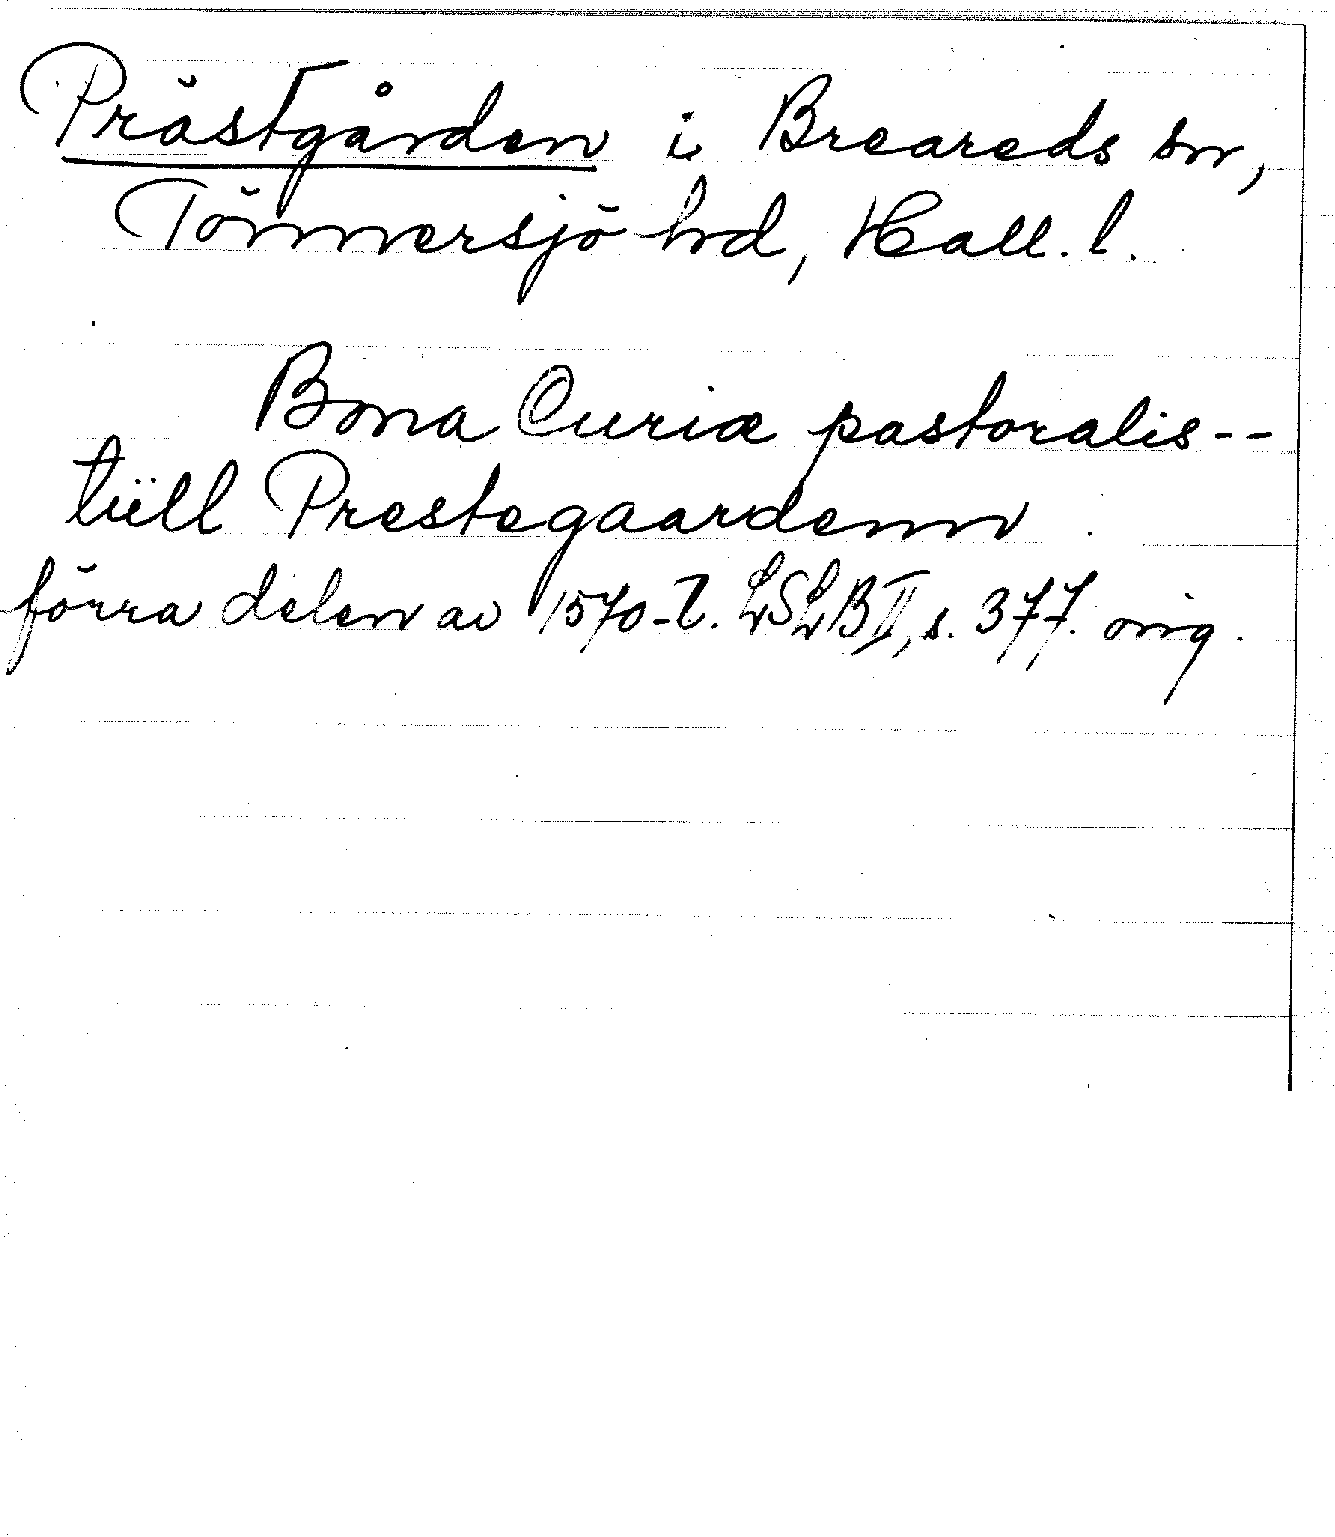 Prästgården i Breareds sn,
Tönnersjö hd, Hall. l.
Bona Curiæ pastoralis--
tiill Prestegaardenn
förra delen av 1570-t. LSLB II, s. 377. orig.